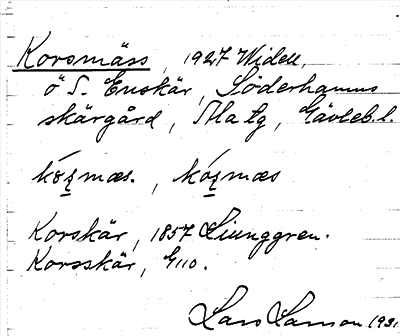 Korsmäss, 1927 Widell,
ö S. Enskär, Söderhamns
skärgård, Ha lg, Gävleb. l.
kózmæs., kózmæs
Korskär, 1857 Ljunggren.
Korsskär, G110.
Lars Larson 193